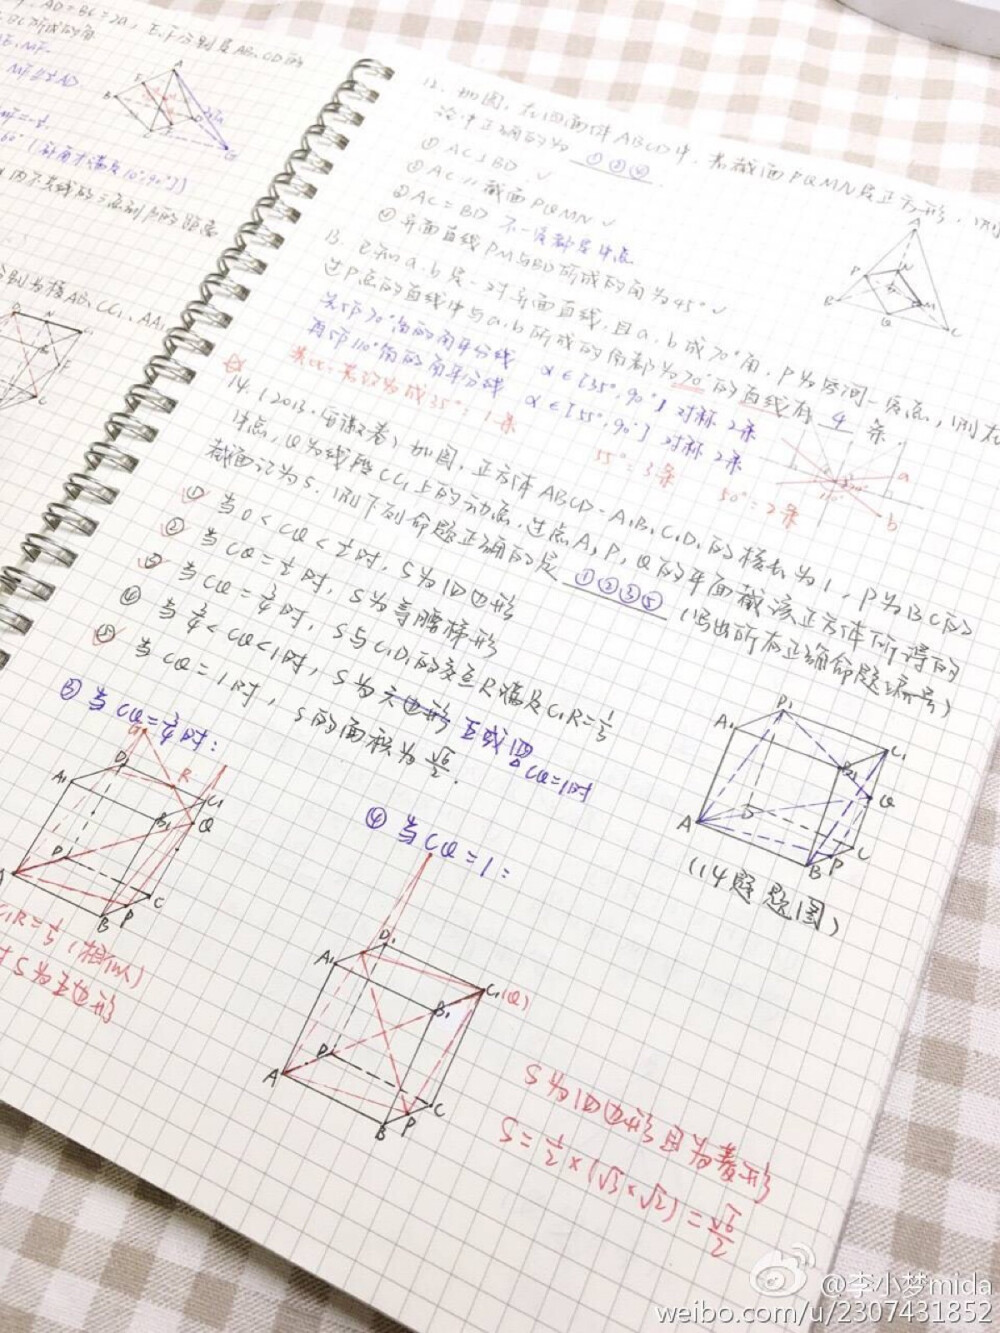 AD=BC=2a, E、F分别是AB、CD的
12. 如图, 在四面体ABCD中, 若截面PQMN是正方形, 则
论中正确的为 ①②④.
① AC⊥BD ✓
② AC∥截面PQMN ✓
③ AC=BD 不一定都是中点
④ 异面直线PM与BD所成的角为45° ✓
A
P
N
B
M
Q
C
13. 已知a、b是一对异面直线, 且a、b成70°角, P为空间一定点, 则在
过P点的直线中与a、b所成的角都为70°的直线有 4 条.
先作70°角的角平分线 α∈[35°,90°] 对称 2条
再作110°角的角平分线 α∈[55°,90°] 对称 2条
若改为成35°: 1条
55°: 3条
50°: 2条
a
b
14.(2013·安徽卷) 如图, 正方体ABCD-A₁B₁C₁D₁的棱长为1, P为BC的
中点, Q为线段CC₁上的动点, 过点A, P, Q的平面截该正方体所得的
截面记为S, 则下列命题正确的是 ①②③⑤ (写出所有正确命题编号)
① 当0<CQ<½时, S为四边形
② 当CQ=½时, S为等腰梯形
③ 当CQ=¾时, S与C₁D₁的交点R满足C₁R=⅓
④ 当¾<CQ<1时, S为六边形 五或四 CQ=1时
⑤ 当CQ=1时, S的面积为√6/2.
D₁
A₁
C₁
B₁
Q
A
D
C
B
P
(14题题图)
③ 当CQ=¾时:
R
D₁
A₁
C₁
B₁
Q
D
C
B
P
C₁R=⅓ (相似)
S为五边形
④ 当CQ=1:
D₁
A₁
C₁(Q)
B₁
A
D
C
B
P
S为四边形且为菱形
S=½×(√3×√2)=√6/2
@李小梦mida
weibo.com/u/2307431852